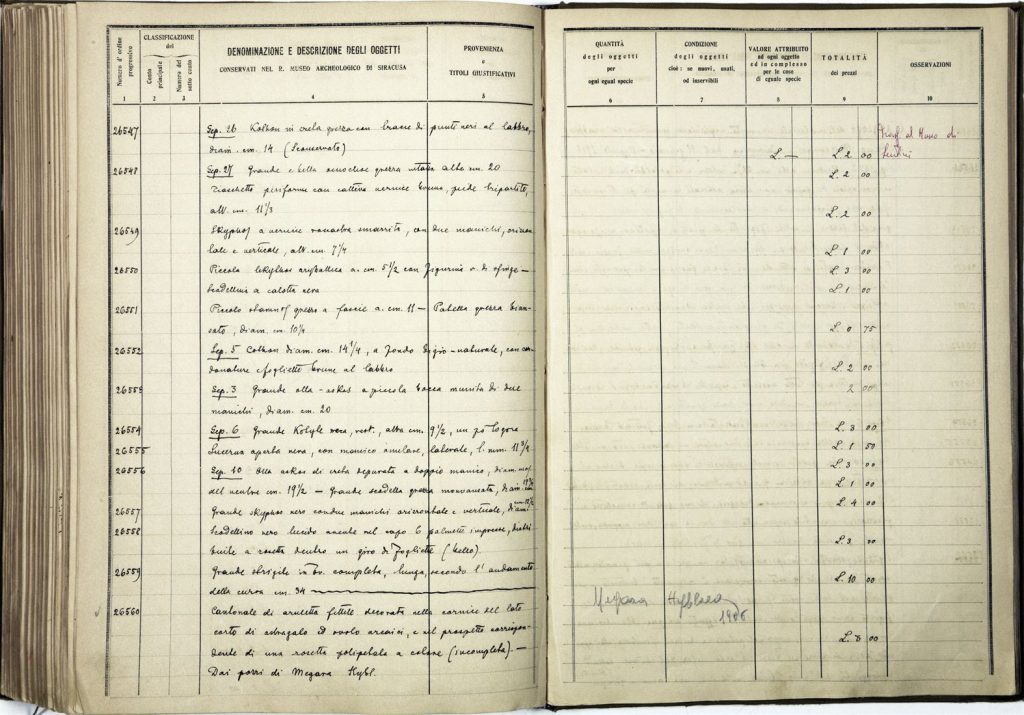 Numero d'ordine progressivo
CLASSIFICAZIONE del
Conto principale
Numero del sotto conto
DENOMINAZIONE E DESCRIZIONE DEGLI OGGETTI
CONSERVATI NEL R. MUSEO ARCHEOLOGICO DI SIRACUSA
PROVENIENZA
e
TITOLI GIUSTIFICATIVI
1 2 3 4 5
26547 Sep. 26 Kothon in creta grezza con tracce di punti neri al labbro,
diam. cm. 14 (Sconservato)
26548 Sep. 27 Grande e bella oenochoe grezza alta cm. 20
piriforme con cattiva vernice bruna, piede tripartito,
alt. cm. 11 1/2
26549 Skyphos a vernice nerastra smarrita, con due manichi, orizon
tale e verticale, alt. cm. 7 1/4
26550 Piccola lekythos aryballica a. cm. 5 1/2 con figurina di sfinge –
Scodellina a calotta nera
26551 Piccolo stamnos grezzo a fascie a. cm. 11 – Patella grezza
diam. cm. 10 1/4
26552 Sep. 5 Cothon diam. cm. 14 1/4, a fondo grigio-naturale, con cor
donature e fogliette brune al labbro
26553 Sep. 3 Grande olla-askos a piccola bocca munita di due
manichi, diam. cm. 20
26554 Sep. 6 Grande Kotyle nera, rest., alta cm. 9 1/2, un po' logora
26555 Lucerna aperta nera, con manico anulare, laterale, l. mm. 11 3/4
26556 Sep. 10 Olla askos di creta depurata a doppio manico, diam.
del ventre cm. 19 1/2 – Grande scodella grezza monoansata, diam. cm
26557 Grande skyphos nero con due manichi orizontale e verticale, diam.
26558 Scodellino nero lucido avente nel cavo 6 palmette impresse, distri
buite a rosetta dentro un giro di fogliette (bello)
26559 Grande strigile in br. completa, lunga, secondo l'andamento
della curva cm. 34
26560 Cantonale di aruletta fittile decorata nella cornice del lato
corto di astragalo ed ovolo arcaici, e nel prospetto corrispon
dente di una rosetta polipetala a colore (incompleta). –
Dai pozzi di Megara Hybl.
QUANTITÀ
degli oggetti
per
ogni egual specie
CONDIZIONE
degli oggetti
cioè: se nuovi, usati,
od inservibili
VALORE ATTRIBUITO
ad ogni oggetto
ed in complesso
per le cose
di eguale specie
TOTALITÀ
dei prezzi
OSSERVAZIONI
6 7 8 9 10
al Museo di
Lentini
L. — L. 2 00
L. 2 00
L. 2 00
L. 1 00
L. 3 00
L. 1 00
L. 0 75
L. 2 00
2 00
L. 3 00
L. 1 50
L. 3 00
L. 1 00
L. 4 00
L. 3 00
L. 10 00
Megara Hyblaea
1906
L. 8 00